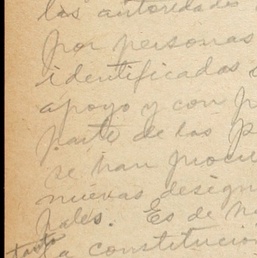 las autoridades
por personas
identificadas
apoyo y con p
parte de los p
se han procu
nuevas design
pales. Es de no
tanto
la constitución